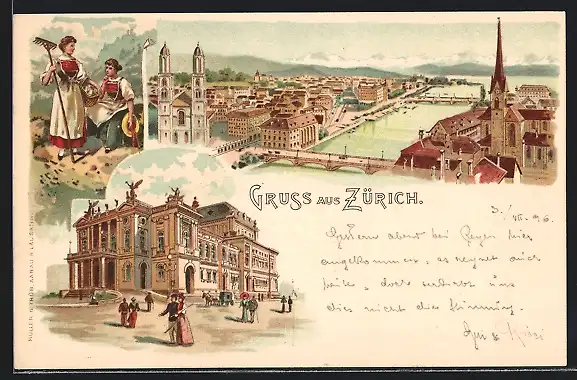 GRUSS AUS ZÜRICH.
3./VII. 96.
Gestern abend bei Regen hier
angekommen, es regnet auch
heute, doch verdirbt uns
dies nicht die Stimmung.
MÜLLER & TRÜB AARAU &